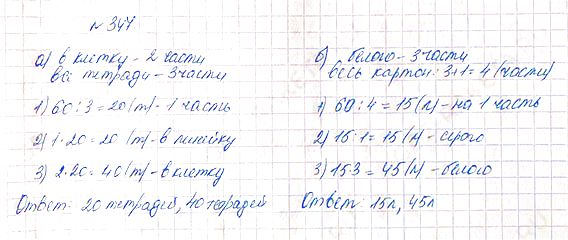 № 347
а) в клетку - 2 части
все тетради - 3 части
1) 60 : 3 = 20 (т) - 1 часть
2) 1·20 = 20 (т) - в линейку
3) 2·20 = 40 (т) - в клетку
Ответ: 20 тетрадей, 40 тетрадей
б) белого - 3 части
весь картон: 3+1 = 4 (части)
1) 60 : 4 = 15 (л) - на 1 часть
2) 15·1 = 15 (л) - серого
3) 15·3 = 45 (л) - белого
Ответ: 15л, 45л